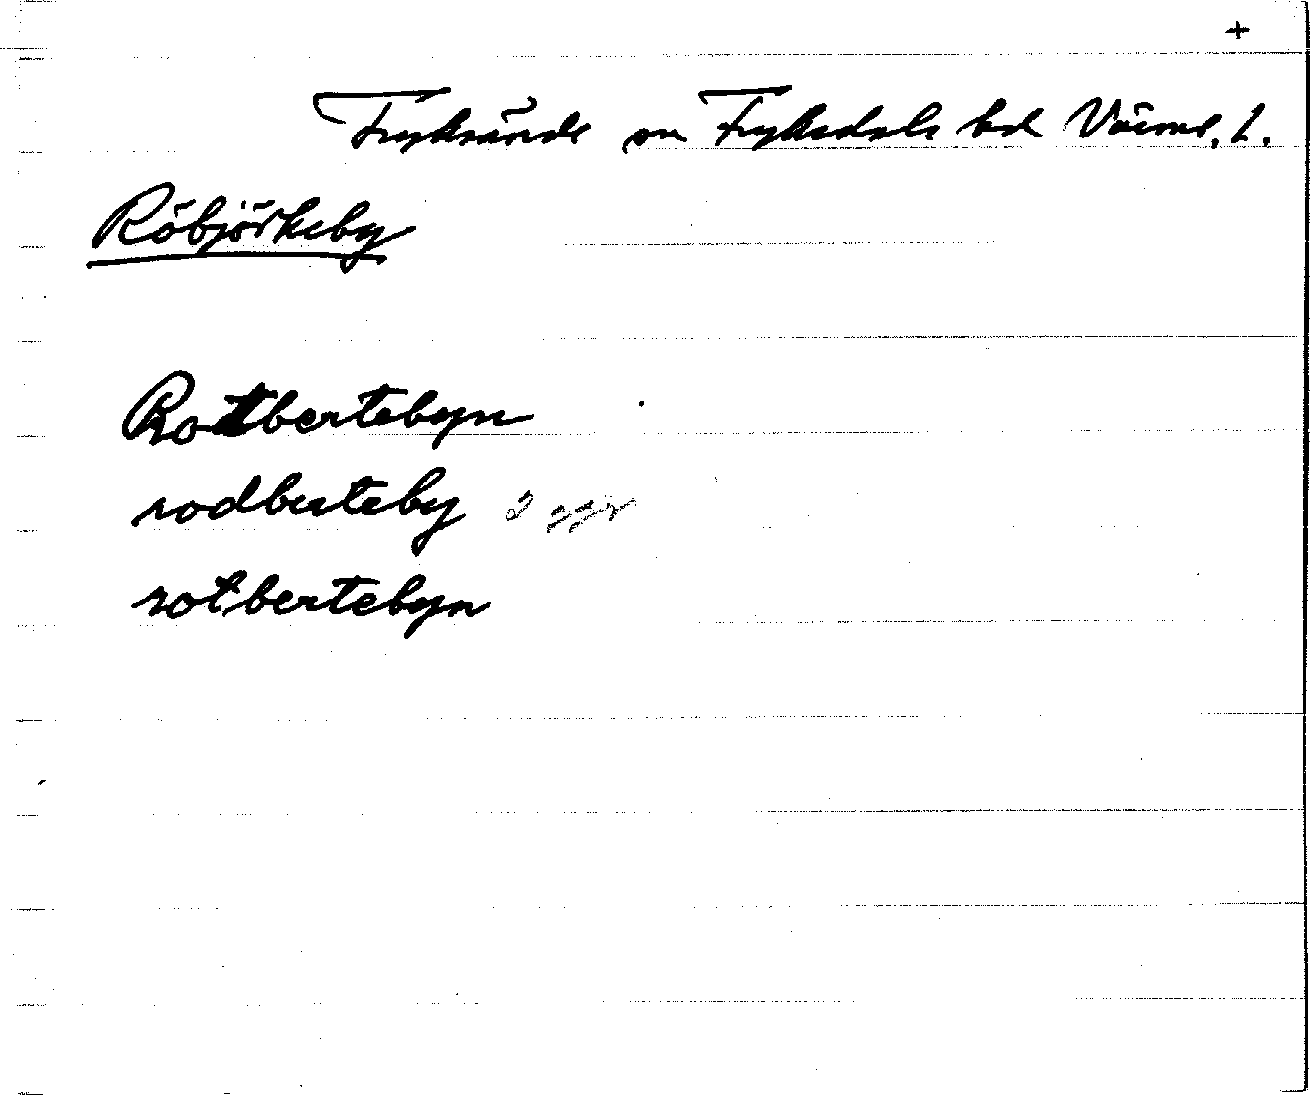 +
Fryksände sn Fryksdals hd Värml. L.
Röbjörkeby
Rotbertebyn
rodberteby 2 ggr
rotbertebyn